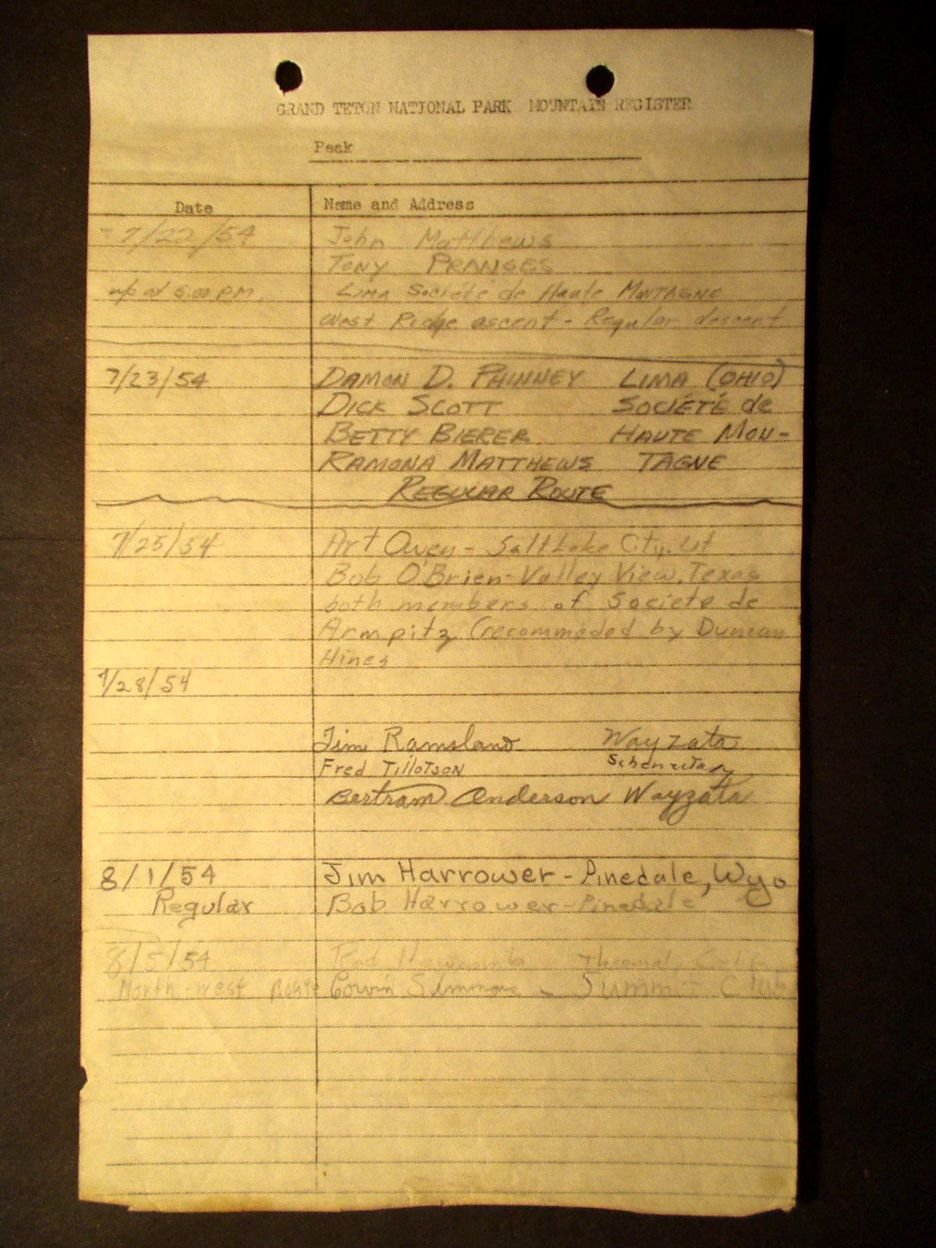 GRAND TETON NATIONAL PARK MOUNTAIN REGISTER
Peak
Date Name and Address
7/22/54 John Matthews
Tony PRANSES
up at 5:00 P.M. LIMA Société de Haute MONTAGNE
West Ridge ascent - Regular descent
7/23/54 DAMON D. PHINNEY LIMA (OHIO)
DICK SCOTT SOCIÉTÉ de
BETTY BIERER HAUTE MON-
RAMONA MATTHEWS TAGNE
REGULAR ROUTE
7/25/54 Art Owen - Salt Lake City, Ut
Bob O'Brien - Valley View, Texas
both members of Societe de
Armpitz (recommoded by Duncan
Hines
7/28/54
Jim Ramsland Wayzata
Fred Tillotson Schenectady
Bertram Anderson Wayzata
8/1/54 Jim Harrower - Pinedale, Wyo
Regular Bob Harrower - Pinedale
8/5/54 Thermal, Calif.
North-west Route Summit Club